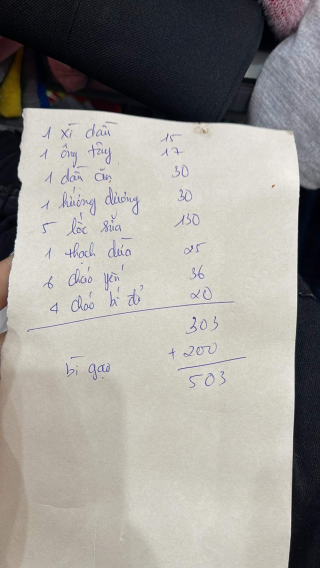 1 xì dầu 15
1 ống tăm 17
1 dầu ăn 30
1 hướng dương 30
5 lốc sữa 130
1 thạch dừa 25
6 cháo yến 36
4 cháo bí đỏ 20
303
bì gạo + 200
503